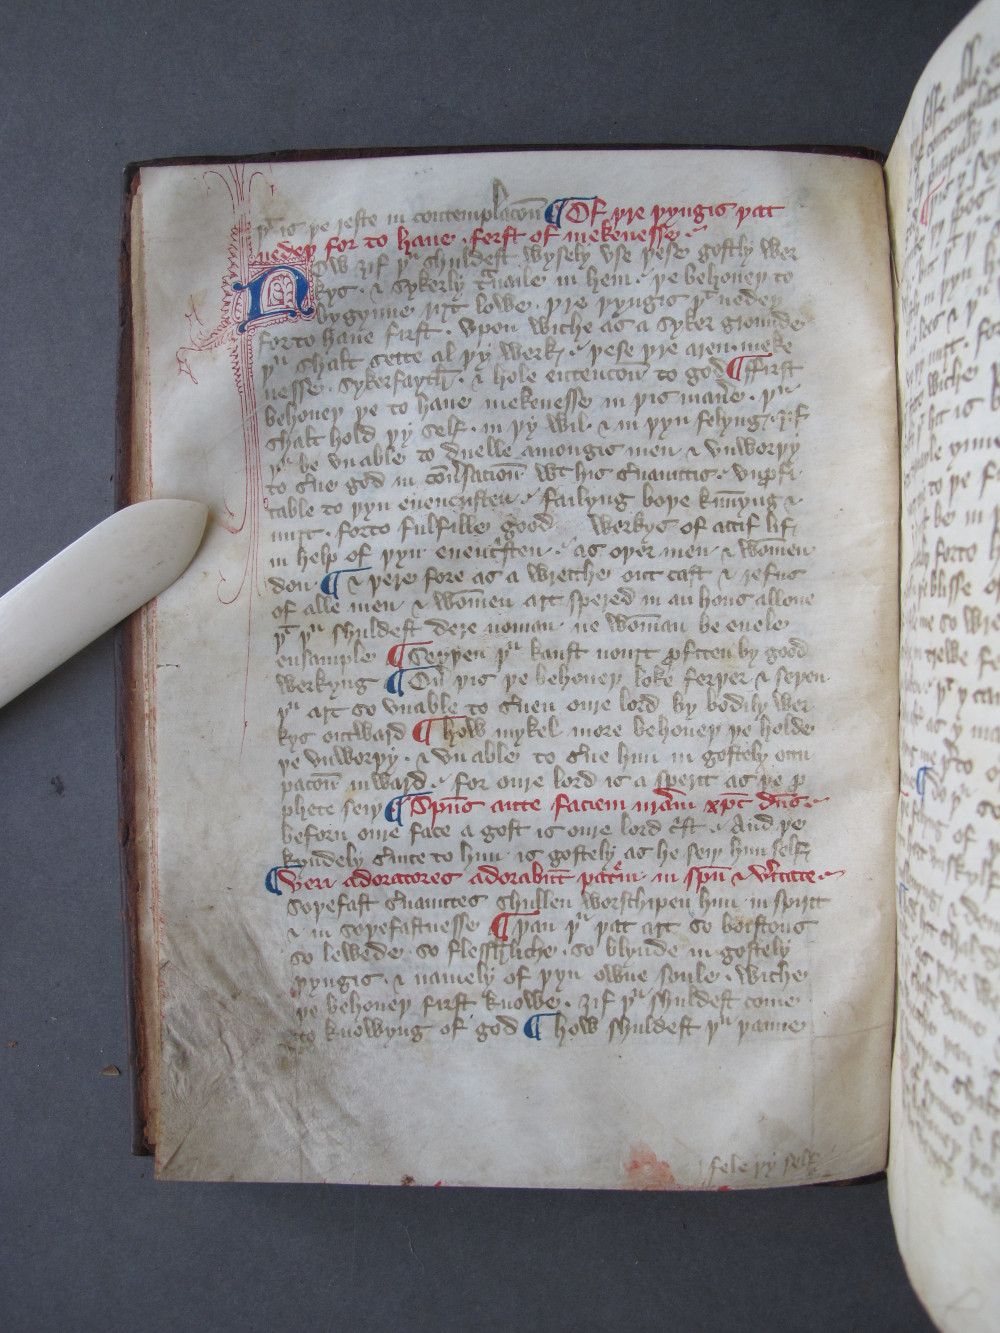 þt is þe reste in contemplacoñ ¶ Of þre þyngis þat
nedeþ for to haue . ferst of mekenesse .
Now ȝif þu shuldest wysely vse þese gostly wer
kys . & sykerly tͣuaile in hem . þe behoueþ to
bygynne riȝt lowe . þre þyngis þu nedeþ
forto haue first . vpon wiche as a syker grounde
þu shalt sette al þy werk . þese þre aren . meke
nesse . sykerfayth . & hole entencoñ to god ¶ ffirst
behoueþ þe to haue mekenesse in þis mañe . þu
shalt hold þy self . in þy wil . & in þyn felyng . ȝif
þu be vnable to duelle amongis men & vnworþy
to sͤue god in cõuͤsacioñ wt his sͤuauntis . vnꝓfi
table to þyn euencristen . faylyng boþe kun̄yng &
miȝt . forto fulfille good werkys of actif lif
in help of þyn euencͥsten . as oþer men & wom̄en
don . ¶ & þere fore as a wrecche out cast & refus
of alle men & wom̄en art spered in an hous allone
þt þu shuldest dere noman ne wom̄an be euele
ensample ¶ Seþþen þu kanst nouȝt ꝓfiten by good
werkyng ¶ Ouͤ þis þe behoueþ loke ferþer & seþen
þu art so vnable to sͤuen oure lord by bodily wer
kys outward ¶ how mykel more behoueþ þe holde
þe vnworþy . & vnable to sͤue him in gostely occu
pacoñ inward . for oure lord is a spirit as þe ꝓ
phete seiþ ¶ Spūs ante faciem nr̄am xp̄c dn̄s .
beforn oure face a gost is oure lord cͥst . And þe
kyndely sͤuice to him is gostely as he seiþ him self
¶ veri adoratores adorabūt patrē in spū & vͤitate .
Soþefast sͤuauntes shullen worschipen him in spirit
& in soþefastnesse ¶ þan þu þat art so boistous
so lewede . so flesshliche . so blynde in gostely
þyngis . & namely of þyn owne soule . wiche
þe behoueþ first knowe . ȝif þu shuldest come
to knowyng of god ¶ how shuldest þu þanne
fele þy self